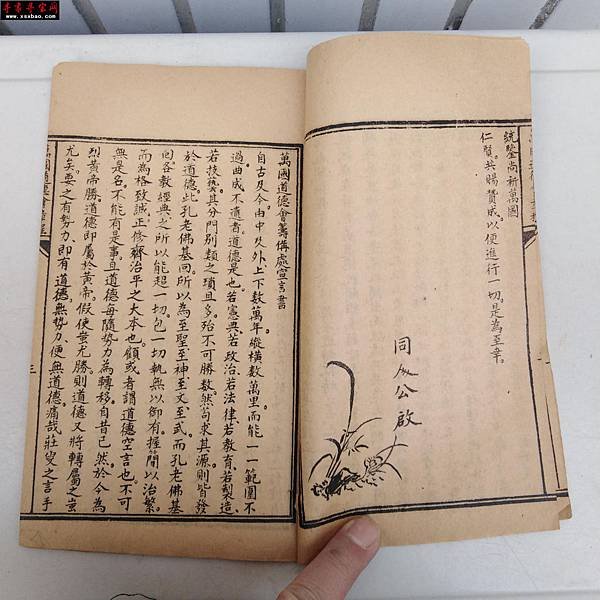 寻索寻宝网
www.xsxbao.com
統鑒尚祈萬國
仁賢。共賜贊成。以便進行一切。是為至幸。
同人公啟
萬國道德會籌備處宣言書
自古及今。由中及外。上下數萬年。縱橫數萬里。而能一一範圍不
過。曲成不遺者。道德是也。若憲典。若政治。若法律。若教育。若製造。
若技藝。其分門別類之瑣且多。殆不可勝數。然苟求其源。則皆發
於道德。此孔老佛基回。所以為至聖至神至文至武。而孔老佛基
回各教經典之所以能超一切包一切。執無以御有。握簡以治繁。
而為格致誠正修齊治平之大本也。顧或者謂道德空言也。不可
無是名。不能有是事。且道德每隨勢力為轉移。自昔已然。於今為
烈。黃帝勝。道德即屬於黃帝。假使蚩尤勝。則道德又將轉屬之蚩
尤矣。要之有勢力。即有道德。無勢力。便無道德。痛哉莊叟之言乎
三